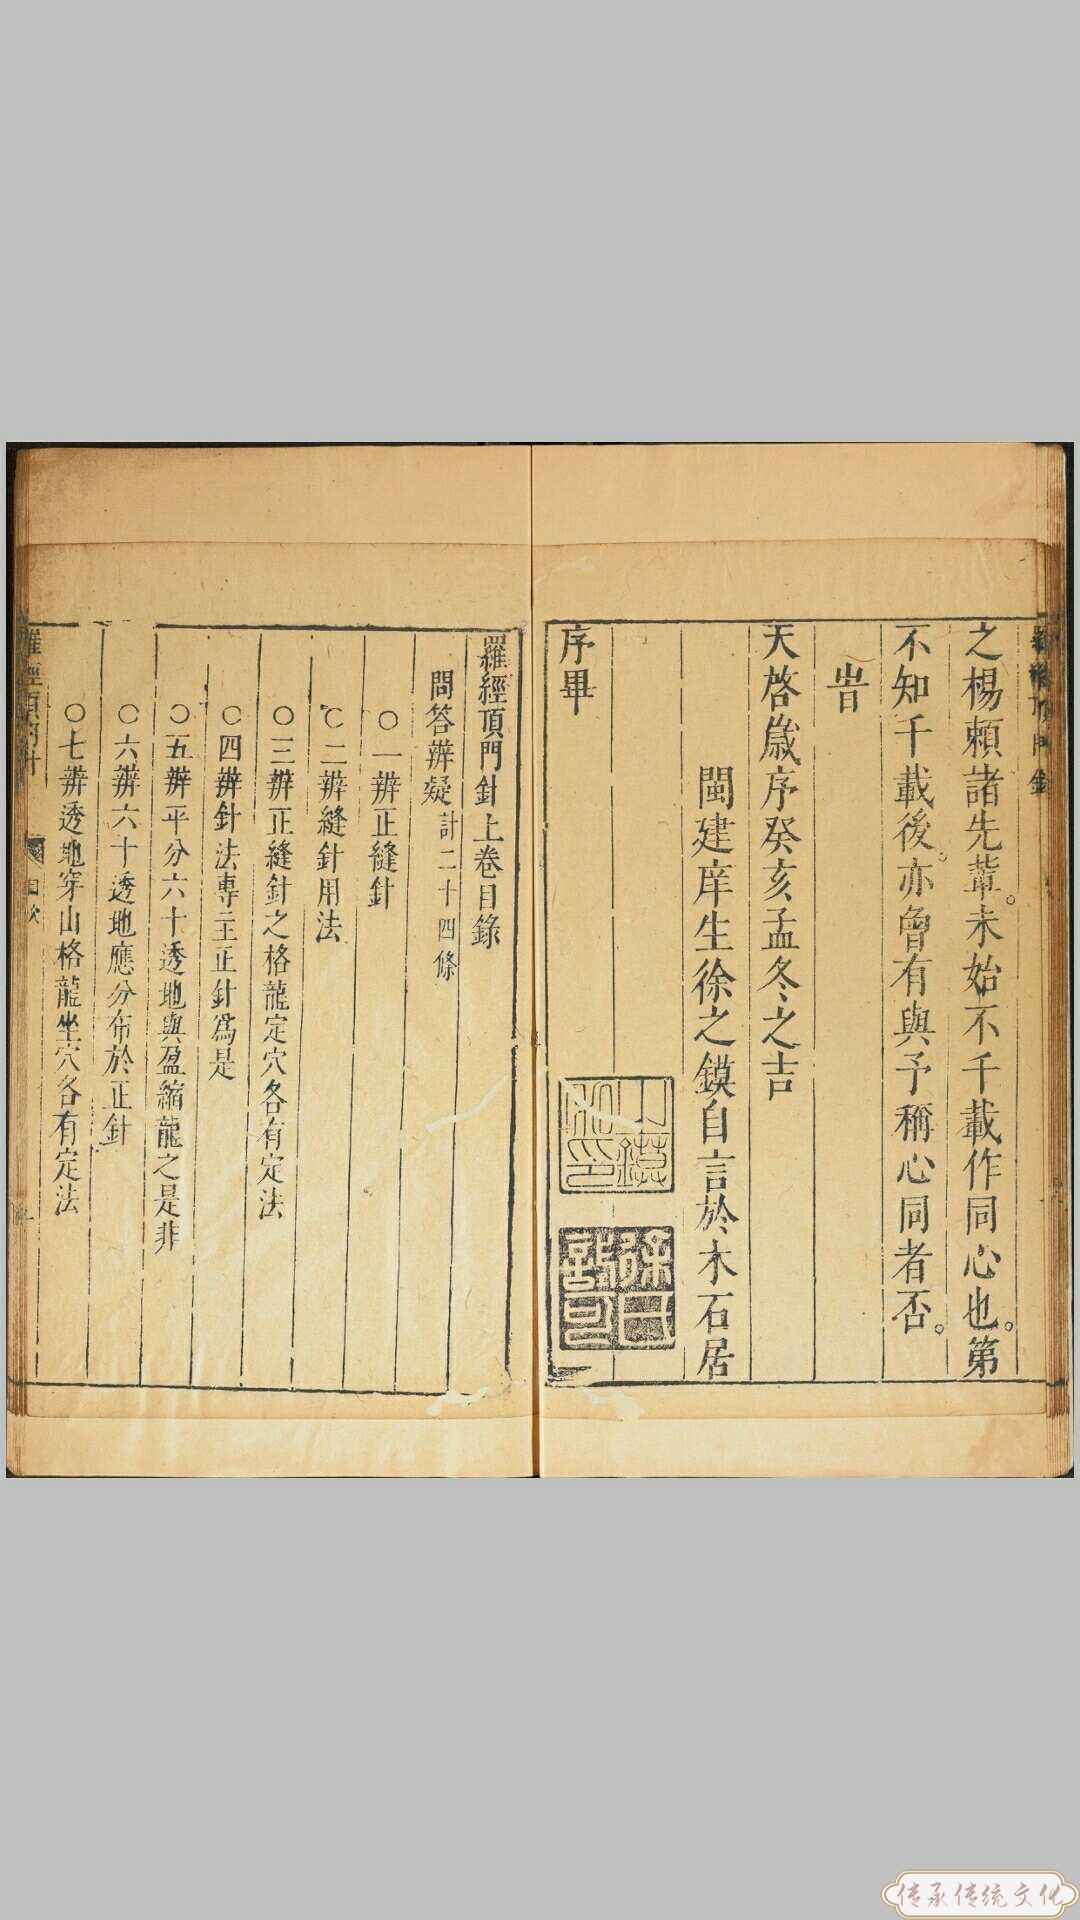 羅經頂門針
之楊賴諸先輩。未始不千載作同心也。第
不知千載後。亦曾有與予稱心同者否。
旹
天啓歲序癸亥孟冬之吉
閩建庠生徐之鏌自言於木石居
序畢
羅經頂門針上卷目錄
問答辨疑計二十四條
○一辨正縫針
○二辨縫針用法
○三辨正縫針之格龍定穴各有定法
○四辨針法專主正針爲是
○五辨平分六十透地與盈縮龍之是非
○六辨六十透地應分布於正針
○七辨透地穿山格龍坐穴各有定法
羅經頂門針
目次
传承传统文化